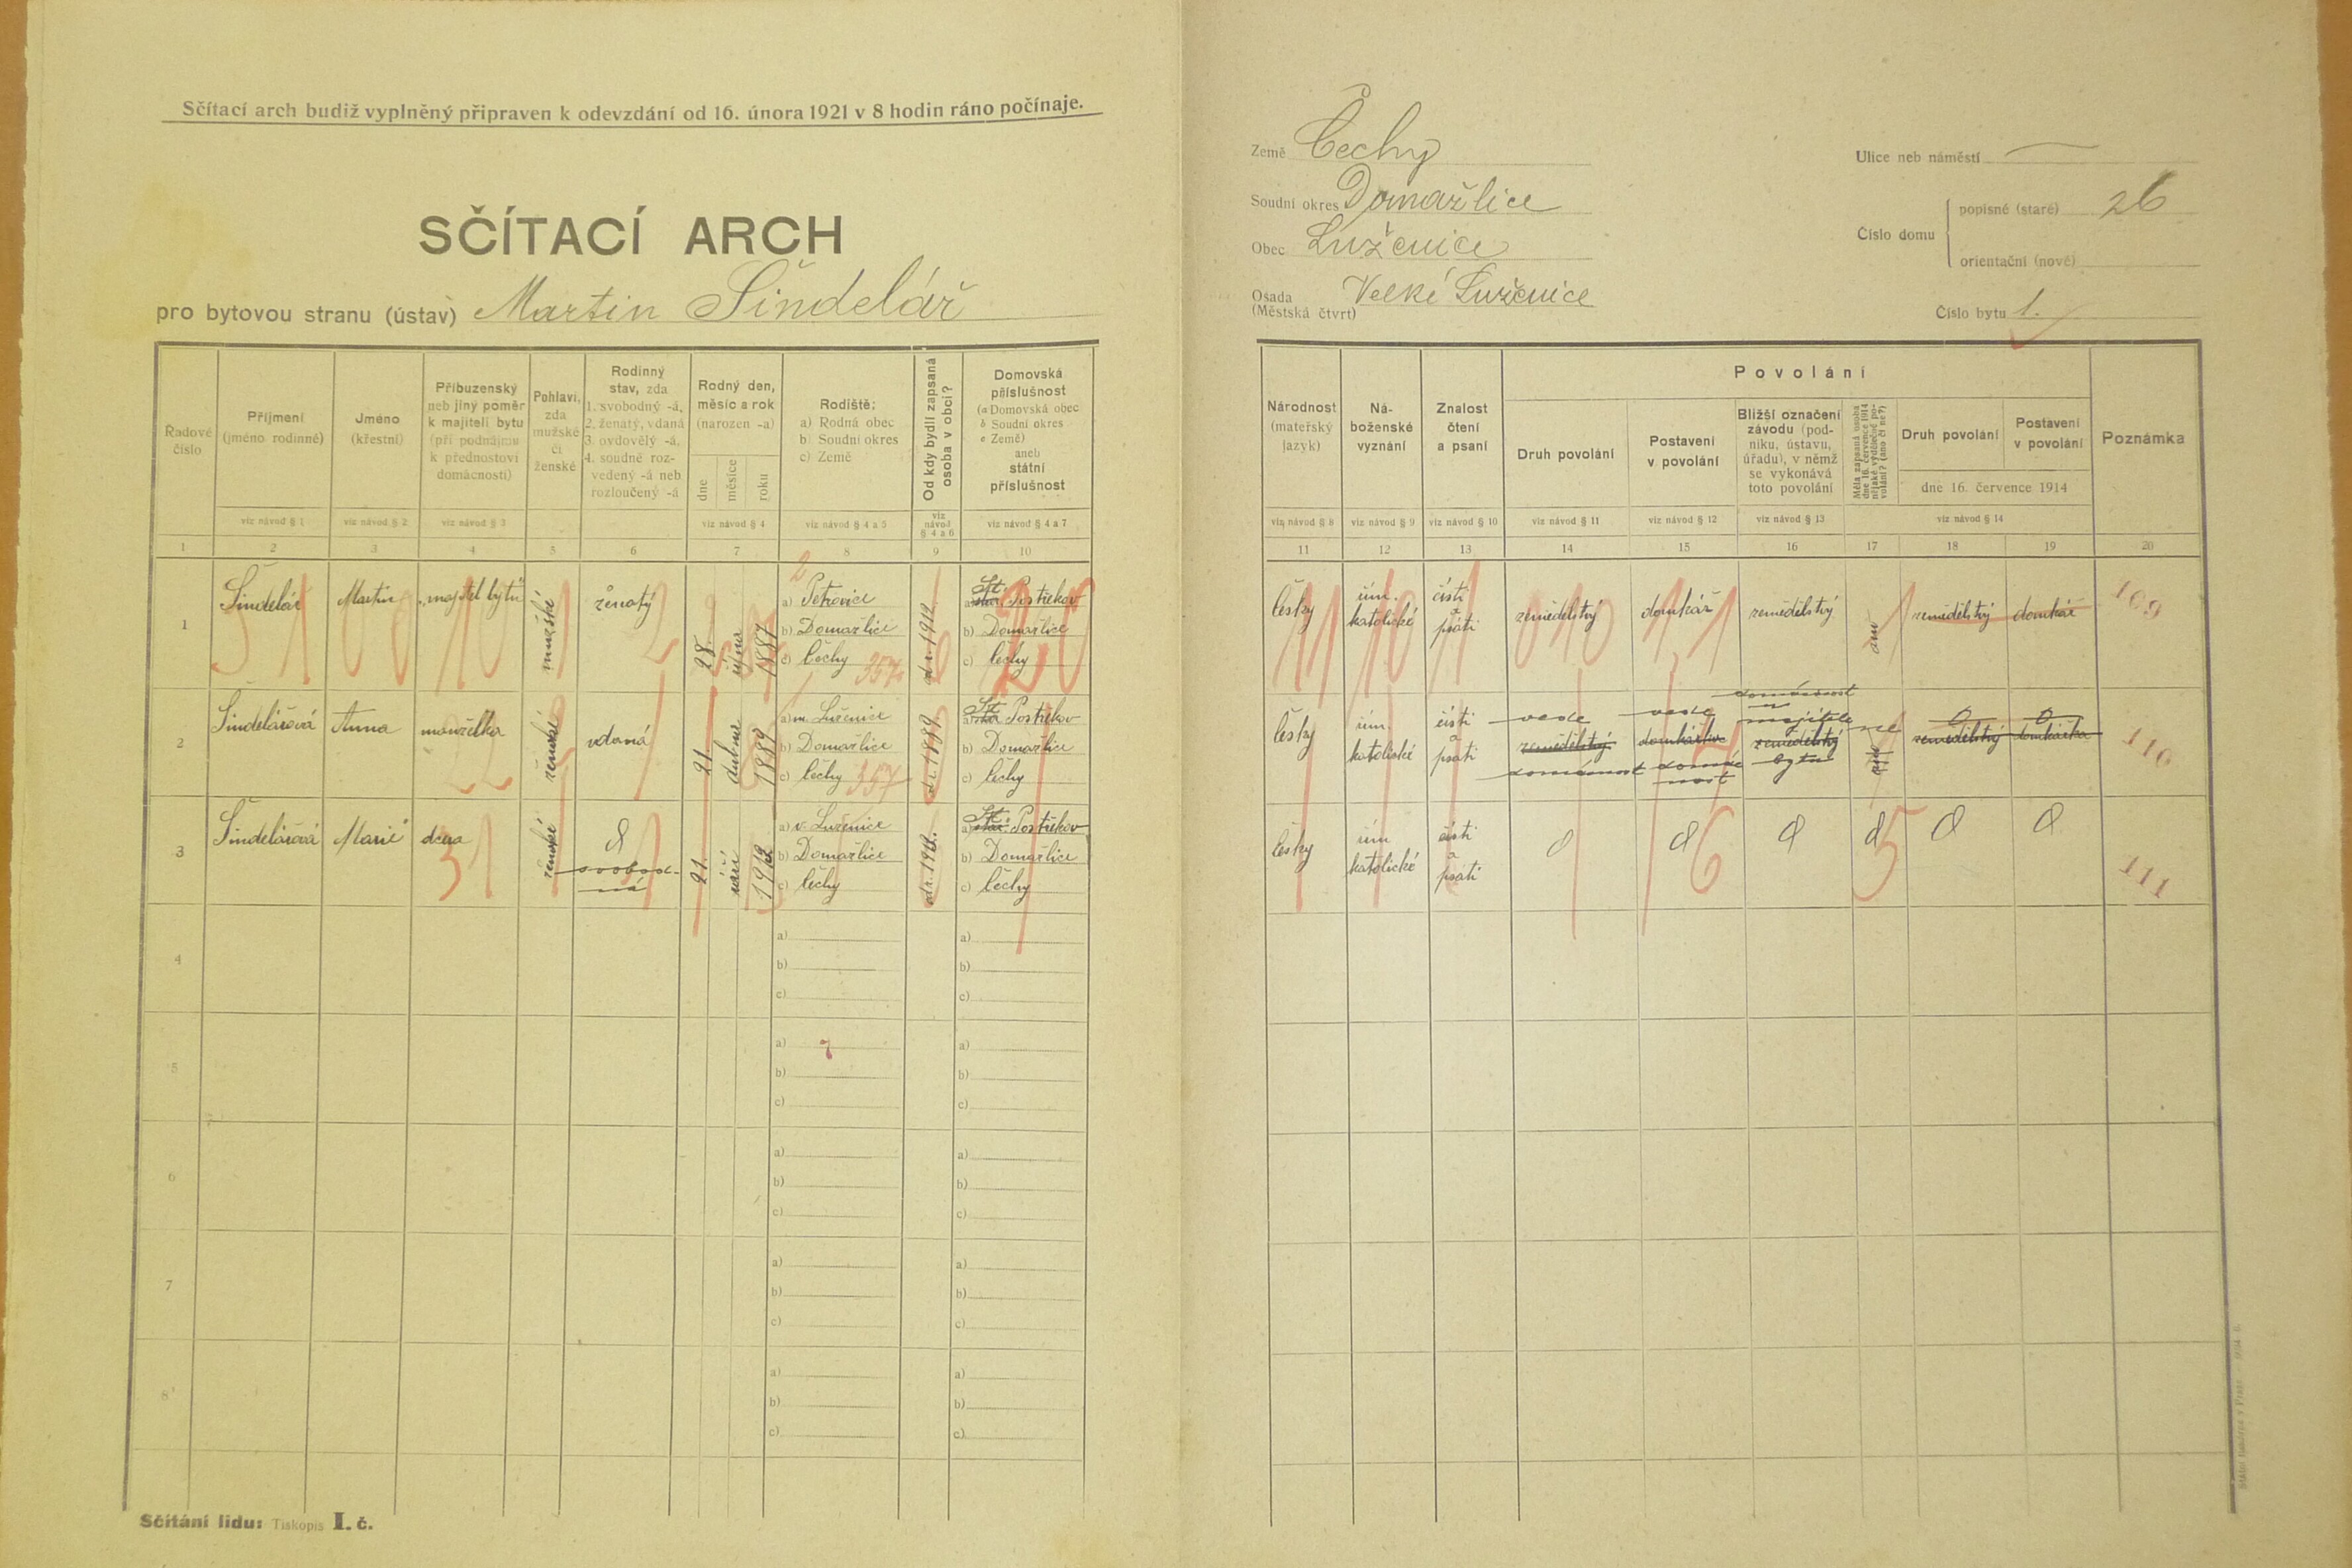 Sčítací arch budiž vyplněný připraven k odevzdání od 16. února 1921 v 8 hodin ráno počínaje.
SČÍTACÍ ARCH
pro bytovou stranu (ústav) Martin Šindelář
Země Čechy
Soudní okres Domažlice
Obec Luženice
Osada Velké Luženice
(Městská čtvrt)
Ulice neb náměstí
Číslo domu
popisné (staré) 26
orientační (nové)
Číslo bytu 1.
Řadové číslo
Příjmení (jméno rodinné)
Jméno (křestní)
Příbuzenský neb jiný poměr k majiteli bytu (při podnájmu k přednostovi domácnosti)
Pohlaví, zda mužské či ženské
Rodinný stav, zda 1. svobodný -á, 2. ženatý, vdaná 3. ovdovělý -á, 4. soudně rozvedený -á neb rozloučený -á
Rodný den, měsíc a rok (narozen -a)
dne měsíce roku
Rodiště: a) Rodná obec b) Soudní okres c) Země
Od kdy bydlí zapsaná osoba v obci?
Domovská příslušnost (a Domovská obec b Soudní okres c Země) aneb státní příslušnost
viz návod § 1
viz návod § 2
viz návod § 3
viz návod § 4
viz návod § 4 a 5
viz návod § 4 a 6
viz návod § 4 a 7
1 2 3 4 5 6 7 8 9 10
Národnost (mateřský jazyk)
Náboženské vyznání
Znalost čtení a psaní
Povolání
Druh povolání
Postavení v povolání
Bližší označení závodu (podniku, ústavu, úřadu), v němž se vykonává toto povolání
Měla zapsaná osoba dne 16. července 1914 nějaké výdělečné povolání? (ano či ne?)
Druh povolání
Postavení v povolání
dne 16. července 1914
Poznámka
viz návod § 8
viz návod § 9
viz návod § 10
viz návod § 11
viz návod § 12
viz návod § 13
viz návod § 14
11 12 13 14 15 16 17 18 19 20
1 Šindelář Martin majitel bytu mužské ženatý 28. října 1887
a) Petrovice
b) Domažlice
c) Čechy 357
od r. 1912
a) St. Postřekov
b) Domažlice
c) Čechy
česky
řím. katolické
čísti a psáti
zemědělský domkář zemědělský ano zemědělský domkář 109
2 Šindelářová Anna manželka ženské vdaná 21. dubna 1889
a) m. Luženice
b) Domažlice
c) Čechy 357
od r. 1889.
a) St. Postřekov
b) Domažlice
c) Čechy
česky
řím. katolické
čísti a psáti
vede zemědělský domácnost
vede domácnost
domácnost u majitele zemědělský bytu
ne ano
0 zemědělský
0 domkářka
110
3 Šindelářová Marie dcera ženské svobodná 21. září 1912
a) v. Luženice
b) Domažlice
c) Čechy
od r. 1912.
a) St. Postřekov
b) Domažlice
c) Čechy
česky
řím katolické
čísti a psáti
0 0 0 0 0 0
111
4
a)
b)
c)
a)
b)
c)
5
a) 7
b)
c)
a)
b)
c)
6
a)
b)
c)
a)
b)
c)
7
a)
b)
c)
a)
b)
c)
8
a)
b)
c)
a)
b)
c)
Sčítání lidu: Tiskopis I. č.